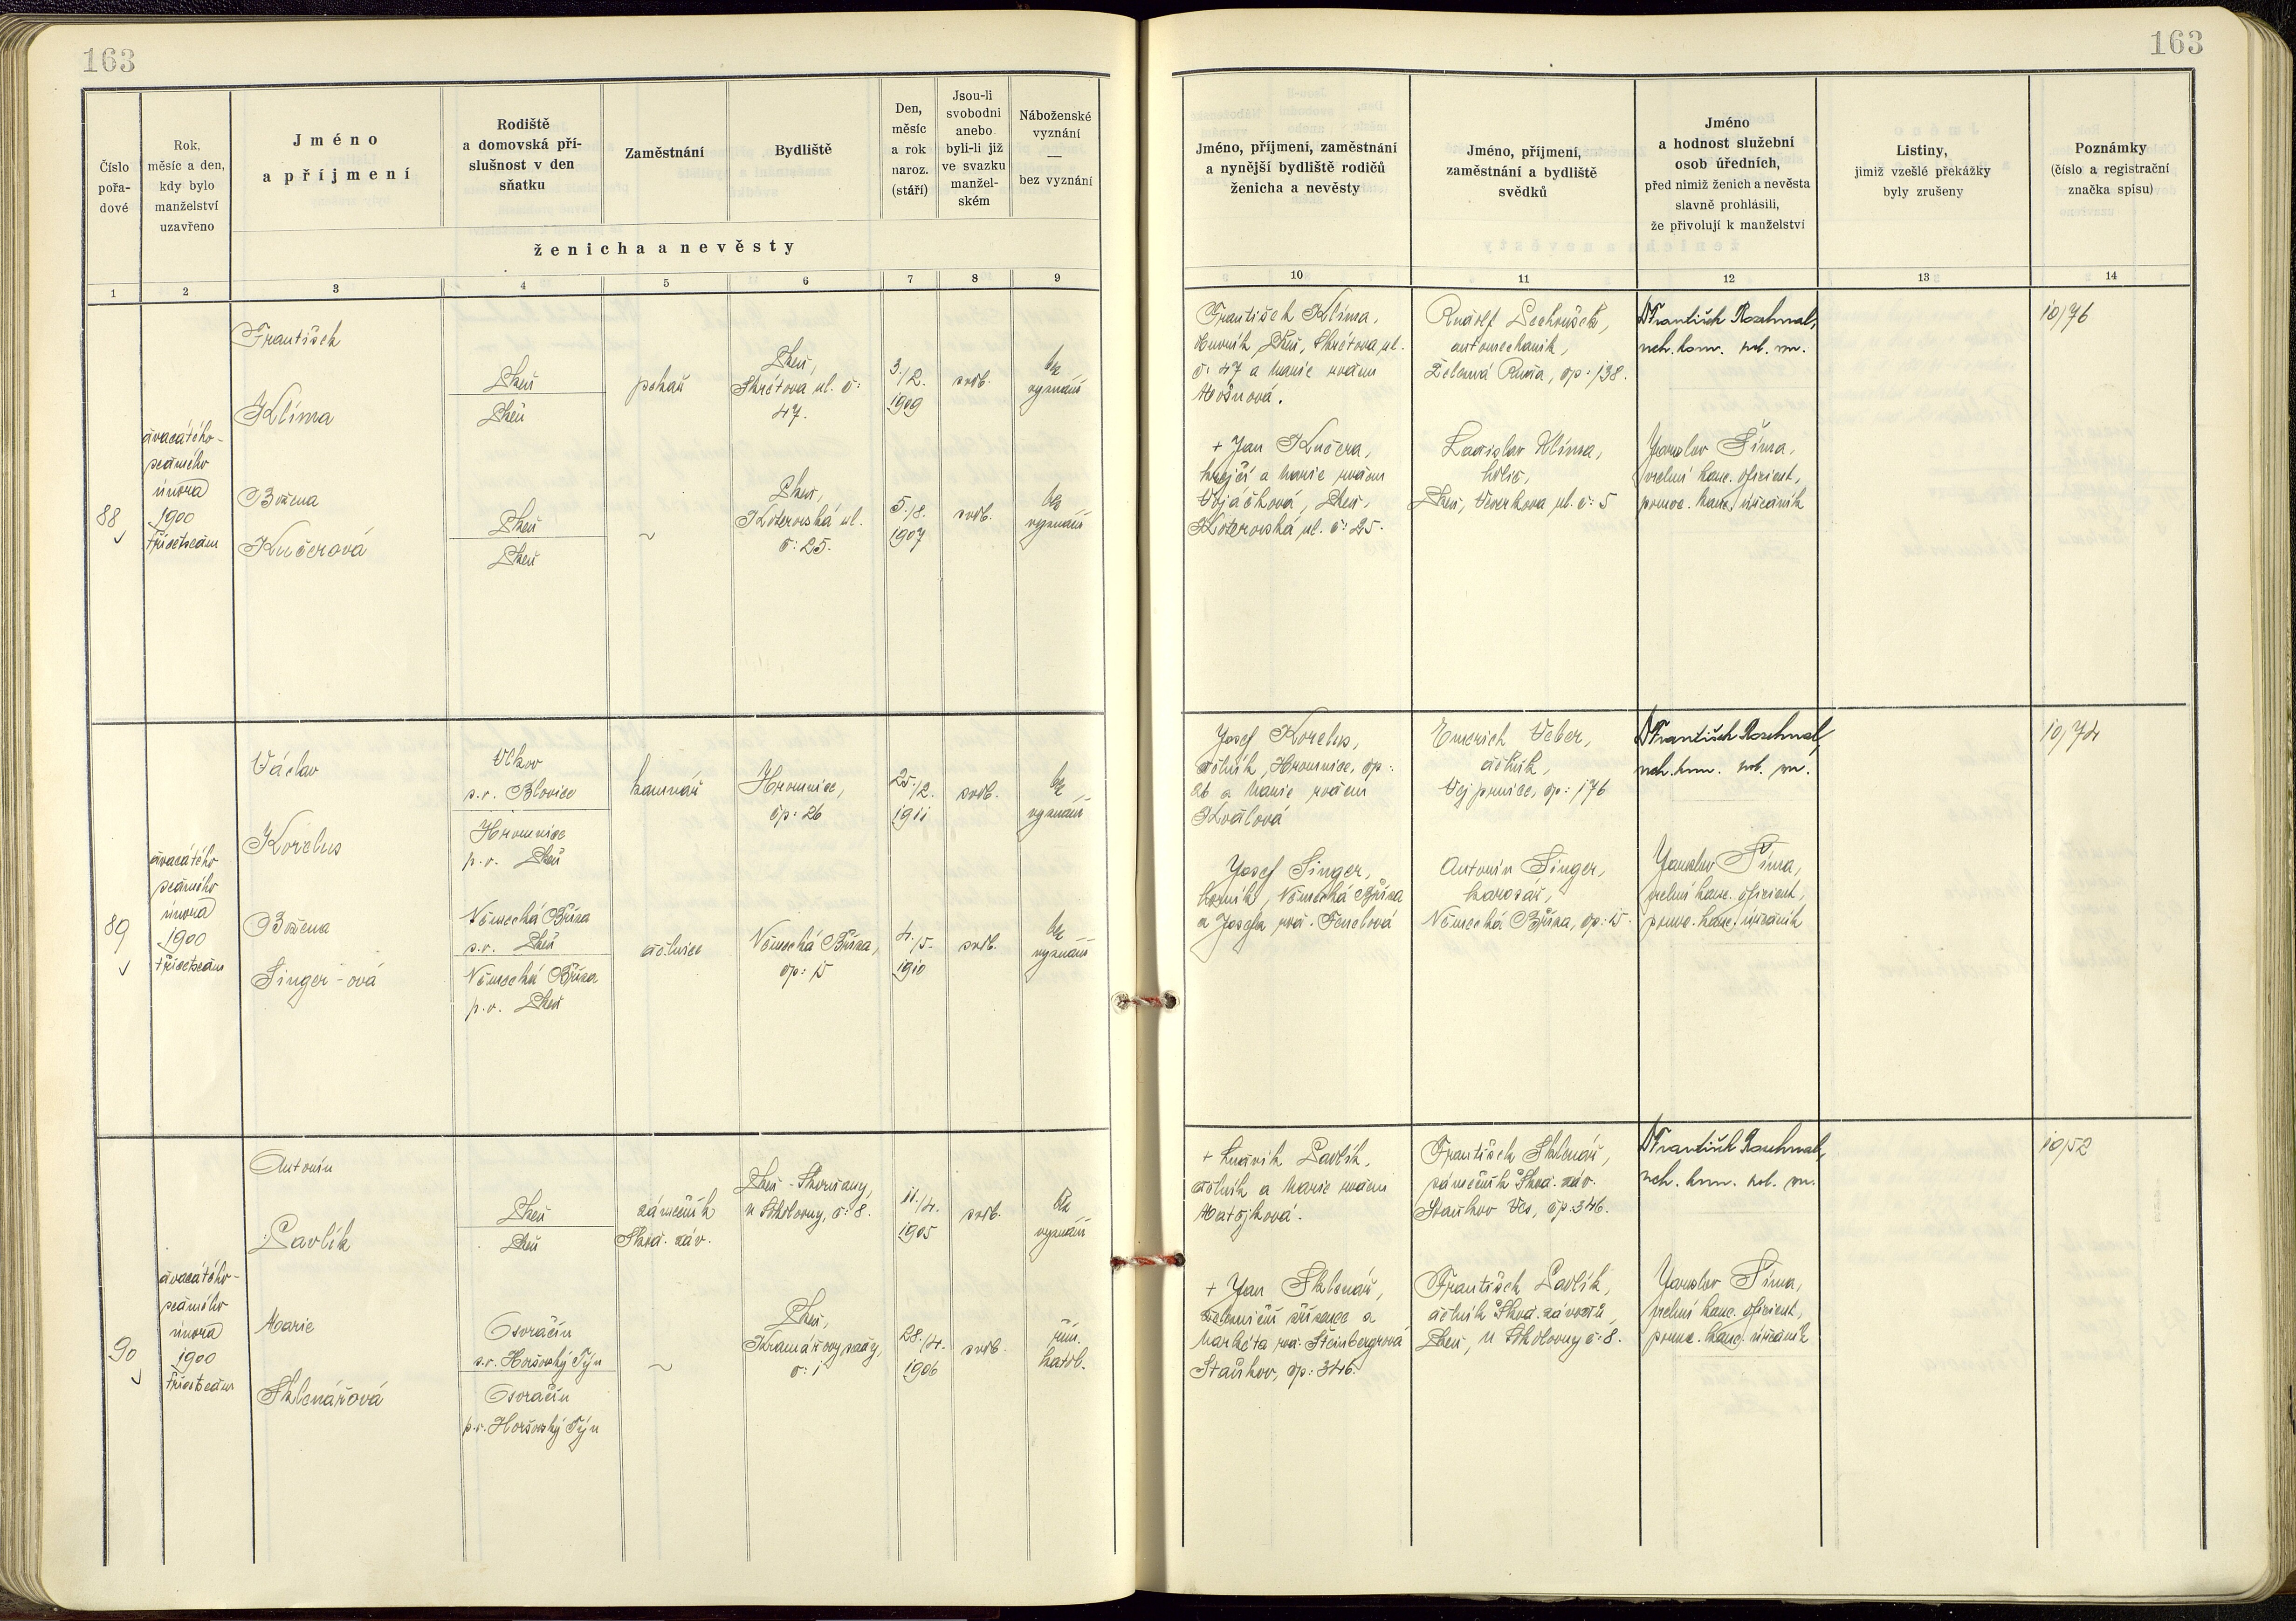 163
163
Číslo
pořa-
dové
Rok,
měsíc a den,
kdy bylo
manželství
uzavřeno
Jméno
a příjmení
Rodiště
a domovská pří-
slušnost v den
sňatku
Zaměstnání
Bydliště
Den,
měsíc
a rok
naroz.
(stáří)
Jsou-li
svobodni
anebo
byli-li již
ve svazku
manžel-
ském
Náboženské
vyznání
—
bez vyznání
ženicha a nevěsty
Jméno, příjmení, zaměstnání
a nynější bydliště rodičů
ženicha a nevěsty
Jméno, příjmení,
zaměstnání a bydliště
svědků
Jméno
a hodnost služební
osob úředních,
před nimiž ženich a nevěsta
slavně prohlásili,
že přivolují k manželství
Listiny,
jimiž vzešlé překážky
byly zrušeny
Poznámky
(číslo a registrační
značka spisu)
1 2 3 4 5 6 7 8 9
10 11 12 13 14
88
dvacátého-
sedmého
února
1900
třicetsedm
František
Klíma
Plzeň
Plzeň
pekař
Plzeň,
Skrétova ul. č:
47.
3./2.
1909
svob.
bez
vyznání
Božena
Kučerová
Plzeň
Plzeň
~
Plzeň,
Koterovská ul.
č: 25.
5./8.
1907
svob.
bez
vyznání
František Klíma,
Plzeň, Skrétova ul.
č: 47 a Marie rozem
+ Jan Kučera,
krejčí a Marie rozem
Plzeň,
Koterovská ul. č: 25.
Rudolf
automechanik,
Železná Ruda, čp: 138.
Ladislav Klíma,
holič,
Plzeň, Veverkova ul. č: 5
Dr František Rozehnal,
Jaroslav Šíma,
kanc. oficient,
pomoc. kanc. úředník
10/76
89
dvacátého
sedmého
února
1900
třicetsedm
Václav
Korelus
Vlkov
s.o. Blovice
Hromnice
p.o. Plzeň
kamnář
Hromnice,
čp: 26
25./2.
1911
svob.
bez
vyznání
Božena
Singer-ová
Německá Bříza
s.o. Plzeň
Německá Bříza
p.o. Plzeň
dělnice
Německá Bříza,
čp: 15
4./5.
1910
svob.
bez
vyznání
Josef Korelus,
dělník, Hromnice, čp:
26 a Marie rozem
Josef Singer,
horník, Německá Bříza
a Josefa roz.
Emerich Veber,
dělník,
Vejprnice, čp: 176
Antonín Singer,
Německá Bříza, čp: 15
Dr František Rozehnal,
Jaroslav Šíma,
kanc. oficient,
pomoc. kanc. úředník
10/74
90
dvacátého-
sedmého
února
1900
třicetsedm
Antonín
Pavlík
Plzeň
Plzeň
zámečník
Škod. záv.
Plzeň-Skvrňany,
u Sokolovny, č: 8.
11./4.
1905
svob.
bez
vyznání
Marie
Sklenářová
Osvračín
s.o. Horšovský Týn
Osvračín
p.o. Horšovský Týn
~
Plzeň,
Kramářovy sady,
č: 1
28./4.
1906
svob.
řím.
katol.
+ Ludvík Pavlík,
dělník a Marie rozem
Matějková.
+ Jan Sklenář,
železniční zřízenec a
Markéta roz. Steinbergrová
Staňkov, čp: 346.
František Sklenář,
zámečník Škod. záv.
Staňkov Ves, čp. 346.
František Pavlík,
dělník Škod. závodů,
Plzeň, u Sokolovny č: 8.
Dr František Rozehnal,
Jaroslav Šíma,
kanc. oficient,
pomoc. kanc. úředník
10/52